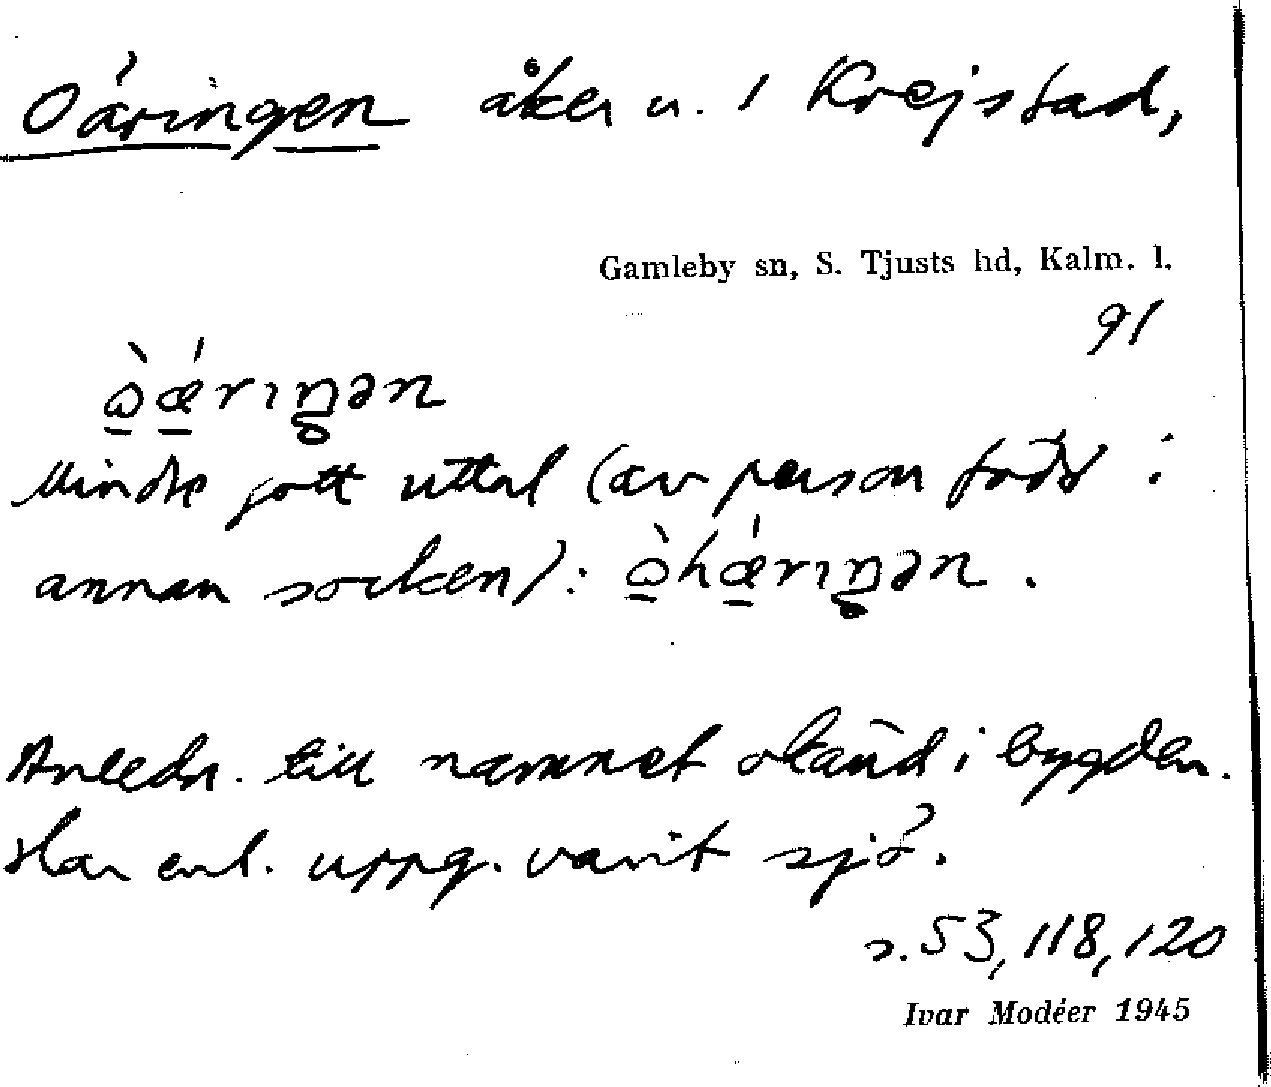 Oäringen åker u. 1 Krejstad,
Gamleby sn, S. Tjusts hd, Kalm. l.
91
Mindre gott uttal (av person född i
annan socken):
Anledn. till namnet okänd i bygden.
Har enl. uppg. varit sjö.
s. 53, 118, 120
Ivar Modéer 1945